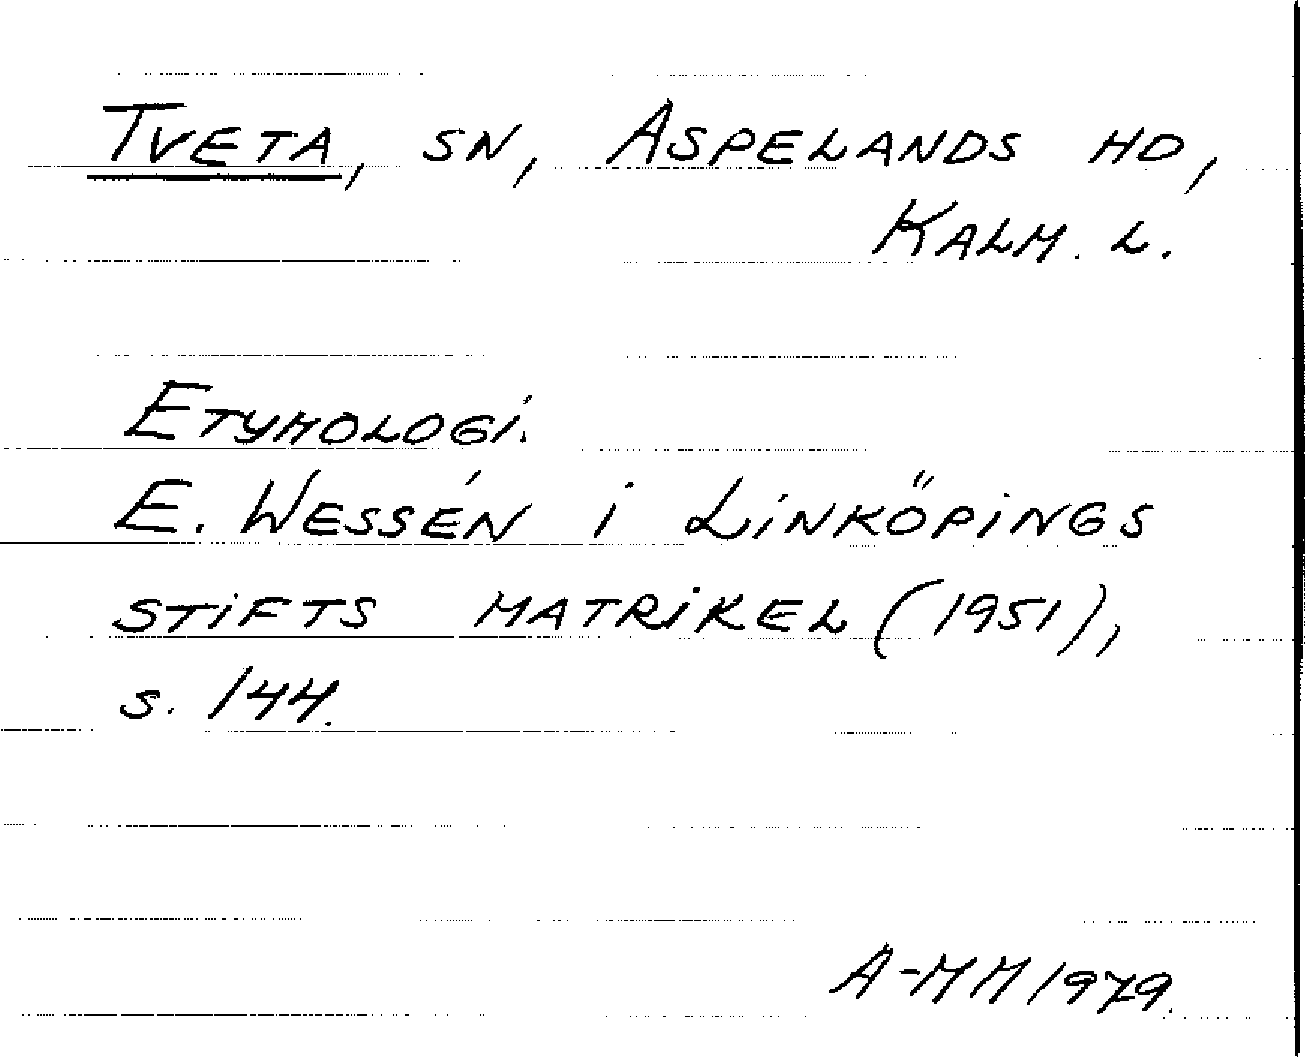 TVETA, SN, ASPELANDS HD,
KALM. L.
ETYMOLOGI.
E. WESSÉN i LINKÖPINGS
STIFTS MATRIKEL (1951),
s. 144.
A-MM 1979.